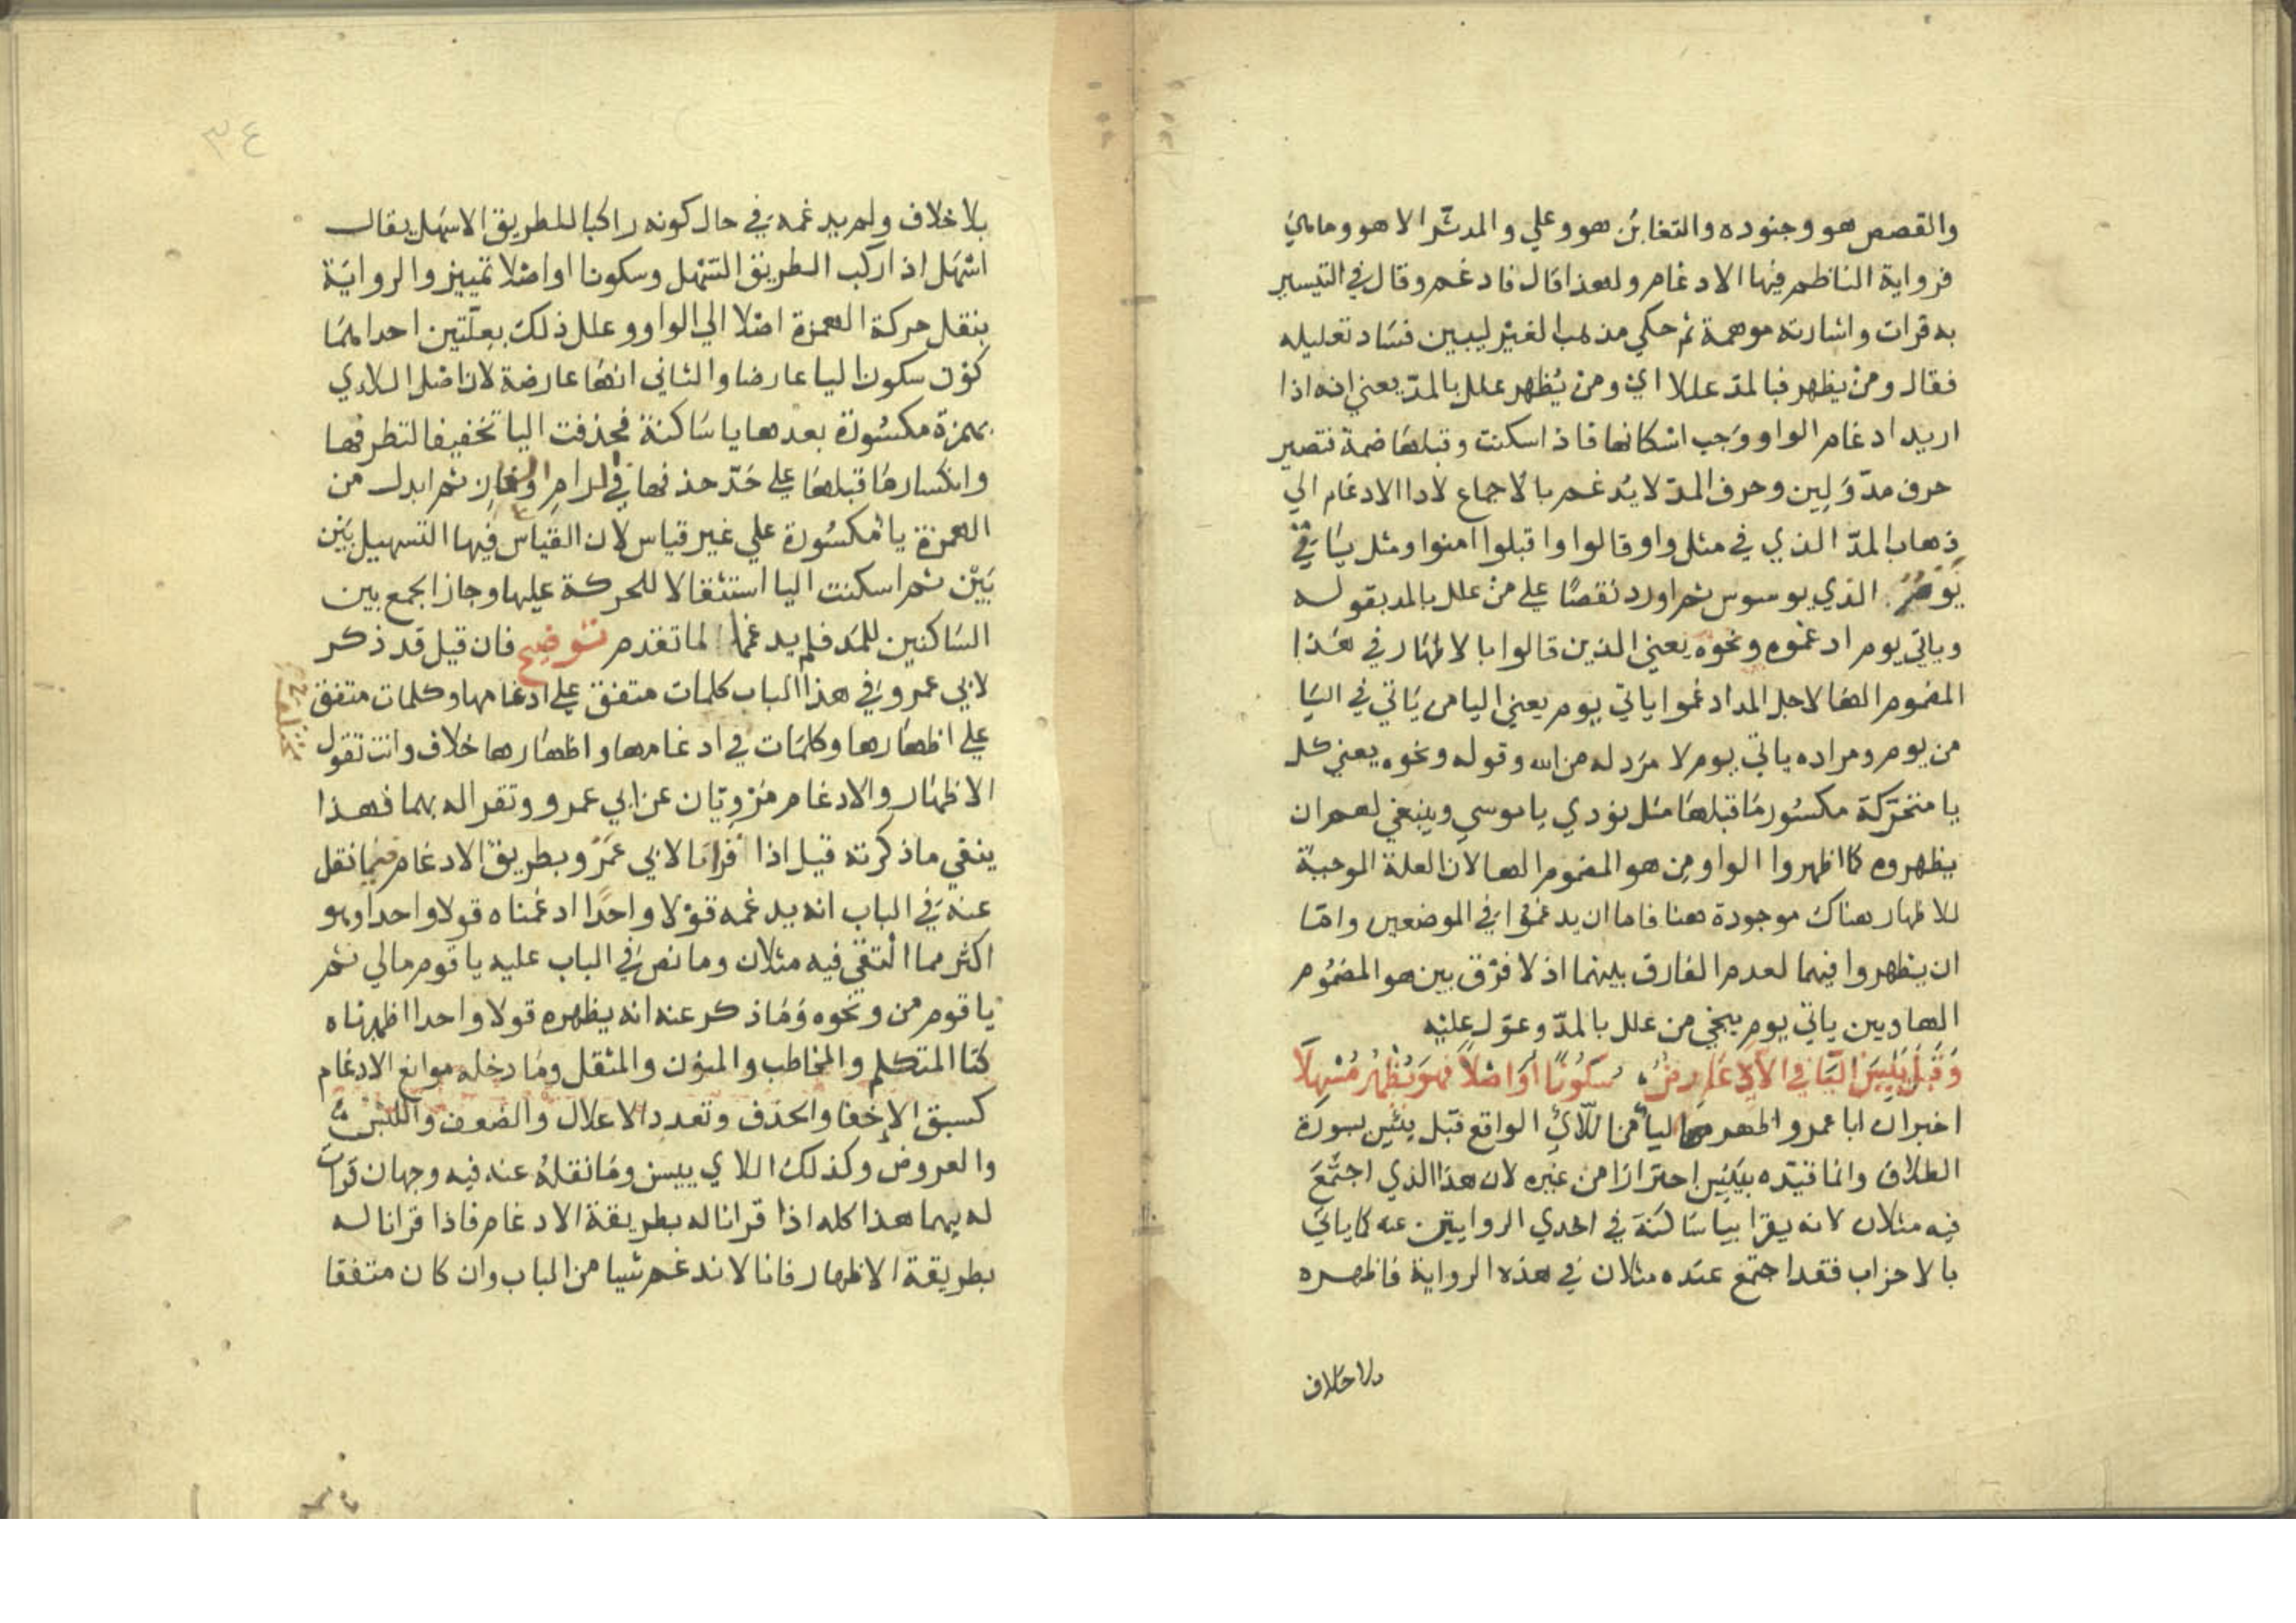 والقصص هو وجنوده والتغابن هو وعلي والمدثر الا هو وماهي
فرواية الناظم فيها الادغام ولهذا قال فادغم وقال في التيسير
به قرات واشارته موهمة ثم حكي مذهب الغير ليبين فساد تعليله
فقال ومن يظهر فبالمد عللا اي ومن يظهر علل بالمد يعني انه اذا
اريد ادغام الواو وجب اسكانها فاذا سكنت وقبلها ضمة فتصير
حرف مد ولين وحرف المد لا يدغم بالاجماع لادا الادغام الي
ذهاب المد الذي في مثل واو قالوا واقبلوا امنوا ومثل يا في
يوم الذي يوسوس ثم اورد نقضا علي من علل بالمد بقوله
وياتي يوم ادغموه ونحوه يعني الذين قالوا بالاظهار في هذا
المضموم الها لاجل المد ادغموا ياتي يوم يعني اليا من ياتي في اليا
من يوم ومراده ياتي يوم لا مرد له من الله وقوله ونحوه يعني كل
يا متحركة مكسور ما قبلها مثل نودي ياموسي وينبغي لهم ان
يظهروه كما اظهروا الواو من هو المضموم الها لان العلة الموجبة
للاظهار هناك موجودة هنا فاما ان يدغموا في الموضعين واما
ان يظهروا فيهما لعدم الفارق بينهما اذ لا فرق بين هو المضموم
الها وبين ياتي يوم ينجي من علل بالمد وعول عليه
وَقَبْلَ يَئِسْنَ اليَا في اللَّاي عَارِضٌ سُكُونًا أَوَ اصْلًا فَهوَ يُظْهِرُ مُسْهِلَا
اخبر ان ابا عمرو اظهر اليا من اللائ الواقع قبل يئسن بسورة
الطلاق وانما قيده بيئسن احترازا من غيره لان هذا الذي اجتمع
فيه مثلان لانه يقرا بيا ساكنة في احدي الروايتين عنه كما ياتي
بالاحزاب فقد اجتمع عنده مثلان في هذه الرواية فاظهره
بلا خلاف
٣٤
بلا خلاف ولم يدغمه في حال كونه راكبا للطريق الاسهل يقال
اسهل اذا ركب الطريق السهل وسكونا او اصلا تمييز والرواية
بنقل حركة الهمزة اصلا الي الواو وعلل ذلك بعلتين احداهما
كون سكون اليا عارضا والثاني انها عارضة لان اصل اللاي
بهمزة مكسورة بعدها يا ساكنة فحذفت اليا تخفيفا لتطرفها
وانكسار ما قبلها علي حد حذفها في الرام والغاز ثم ابدل من
الهمزة يا مكسورة علي غير قياس لان القياس فيها التسهيل بين
بين ثم اسكنت اليا استثقالا للحركة عليها وجاز الجمع بين
الساكنين للمد فلم يدغما لما تقدم توضيح فان قيل قد ذكر
لابي عمرو في هذا الباب كلمات متفق علي ادغامها وكلمات متفق
علي اظهارها وكلمات في ادغامها واظهارها خلاف وانت تقول
الاظهار والادغام مرويان عن ابي عمرو وتقرا له بهما فهذا
ينفي ما ذكرته قيل اذا قرانا لابي عمرو بطريق الادغام فيما نقل
عنه في الباب انه يدغمه قولا واحدا ادغمناه قولا واحدا وهو
اكثر مما التقي فيه مثلان وما نص في الباب عليه ياقوم مالي ثم
ياقوم من ونحوه وما ذكر عنه انه يظهره قولا واحدا اظهرناه
كتا المتكلم والمخاطب والمنون والمثقل وما دخله موانع الادغام
كسبق الاخفا والحذف وتعدد الاعلال والضعف واللبس
والعروض وكذلك اللاي ييسن وما نقله عنه فيه وجهان قرات
له بهما هذا كله اذا قرانا له بطريقة الادغام فاذا قرانا له
بطريقة الاظهار فانا لا ندغم شيا من الباب وان كان متفقا